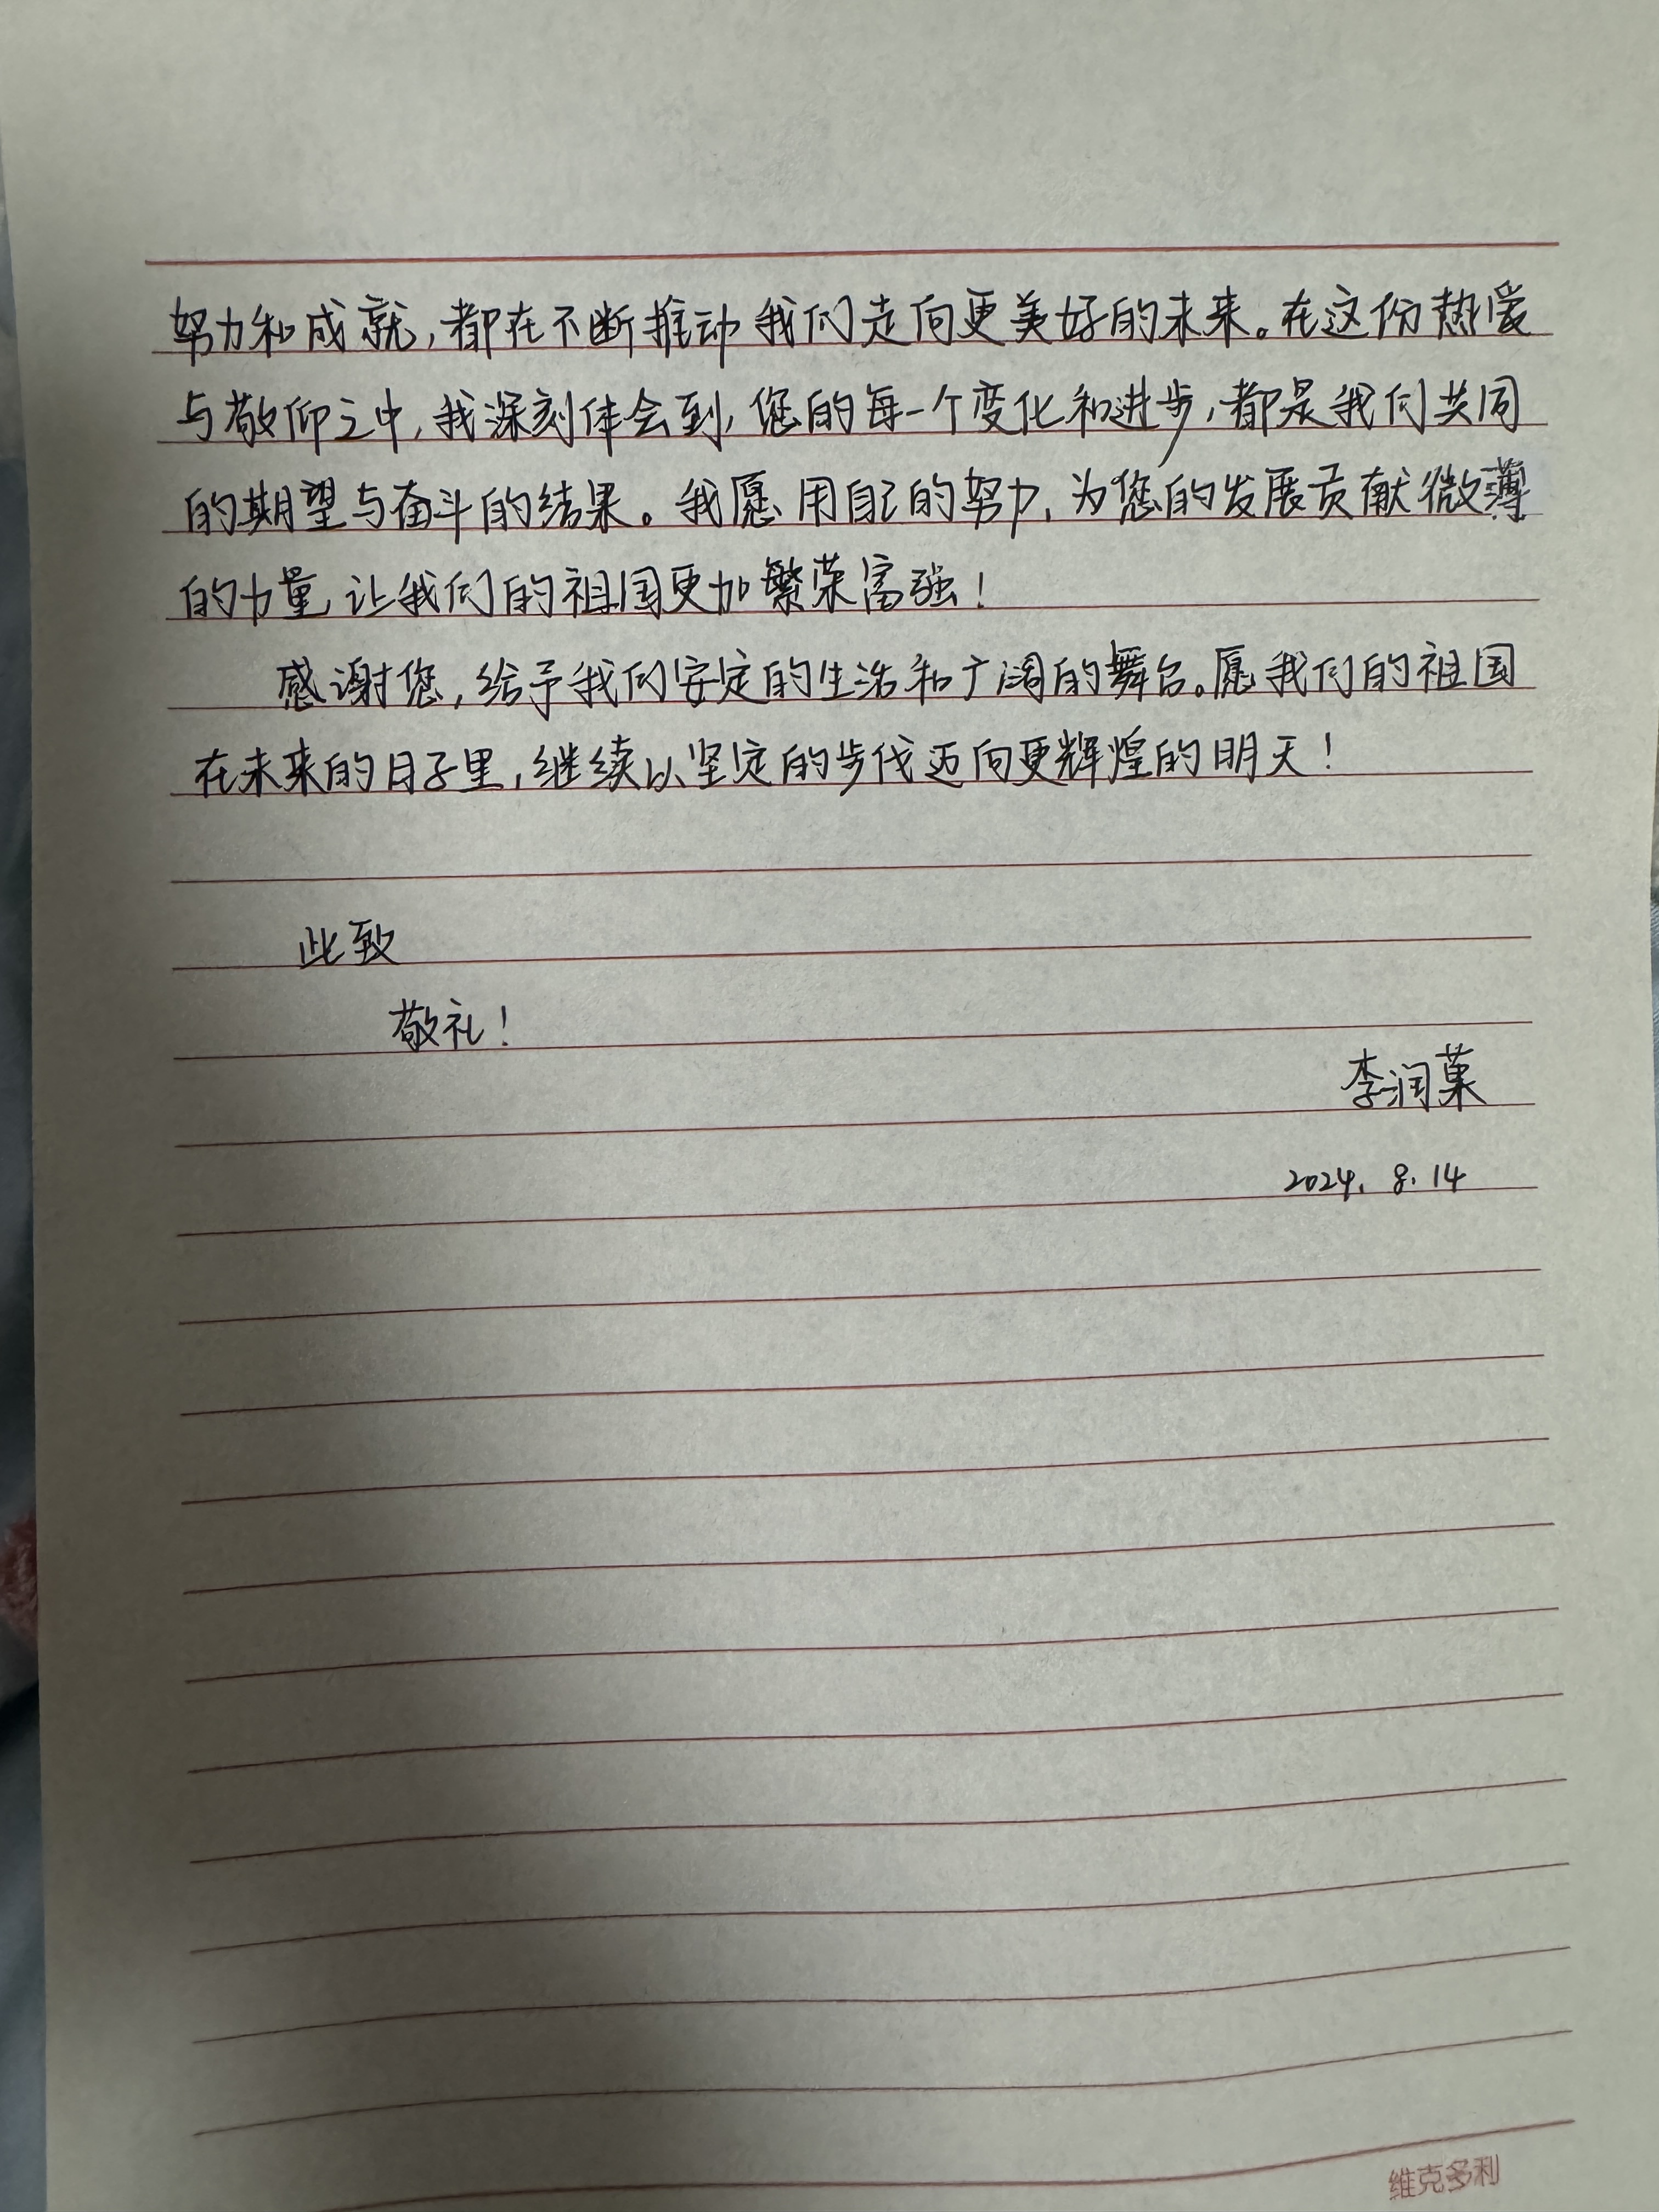 努力和成就，都在不断推动我们走向更美好的未来。在这份热爱
与敬仰之中，我深刻体会到，您的每一个变化和进步，都是我们共同
的期望与奋斗的结果。我愿用自己的努力，为您的发展贡献微薄
的力量，让我们的祖国更加繁荣富强！
感谢您，给予我们安定的生活和广阔的舞台。愿我们的祖国
在未来的日子里，继续以坚定的步伐迈向更辉煌的明天！
此致
敬礼！
李润菓
2024.8.14
维克多利